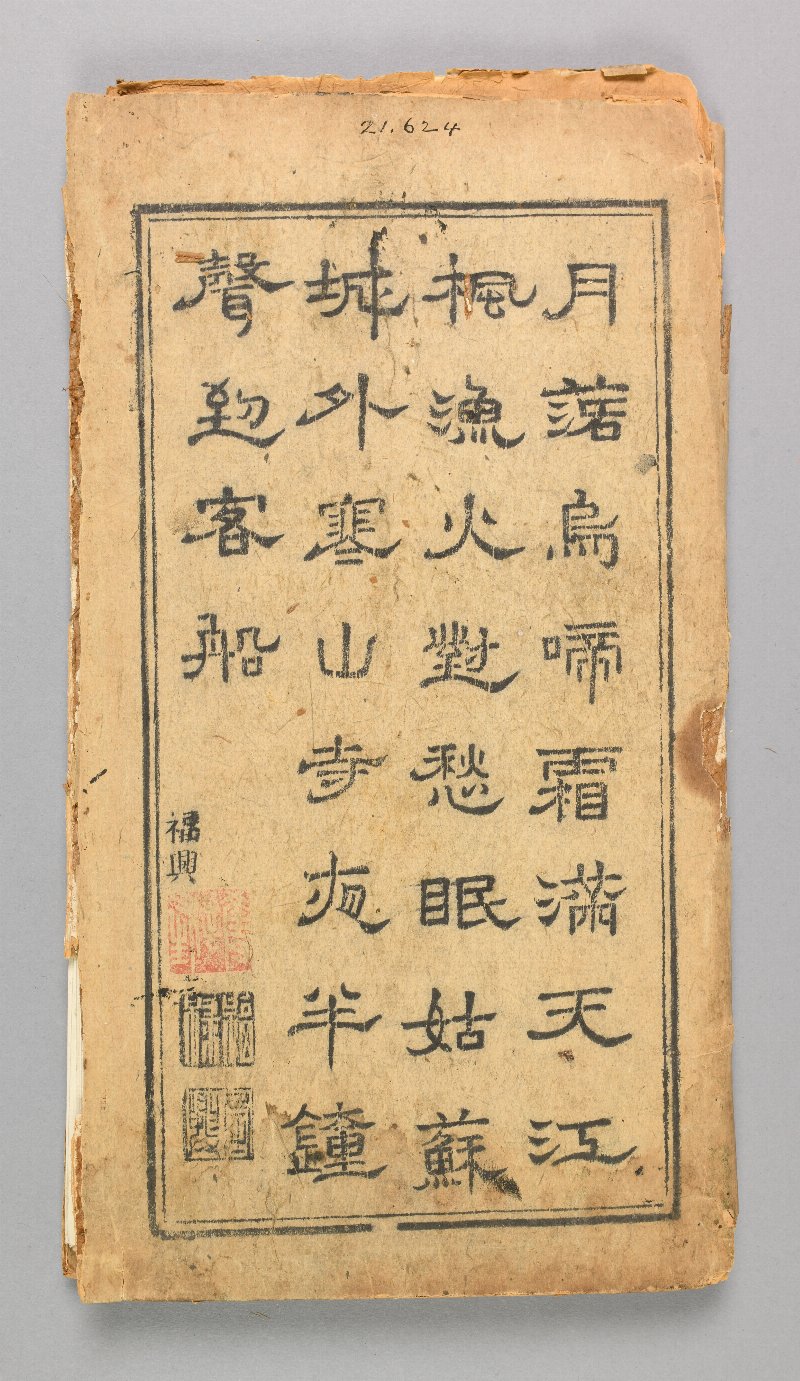 21.624
月落烏啼霜滿天江
楓漁火對愁眠姑蘇
城外寒山寺夜半鐘
聲到客船
福興